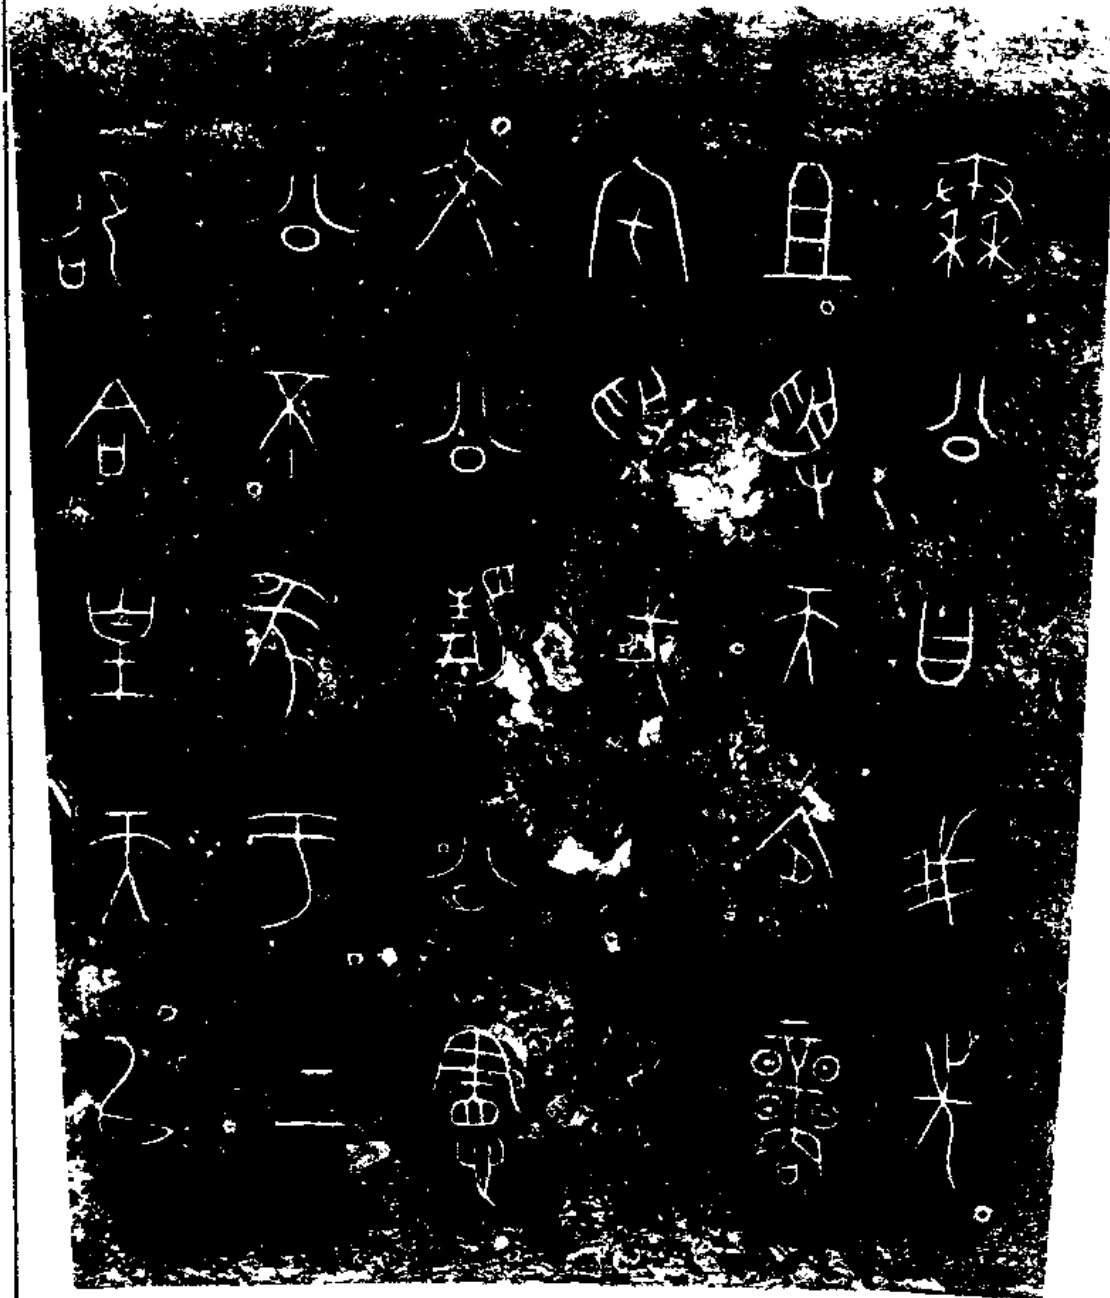 秦公曰我先
且受天令商
宅受或
文公靜公憲
公不㒸于上
卲合皇天以